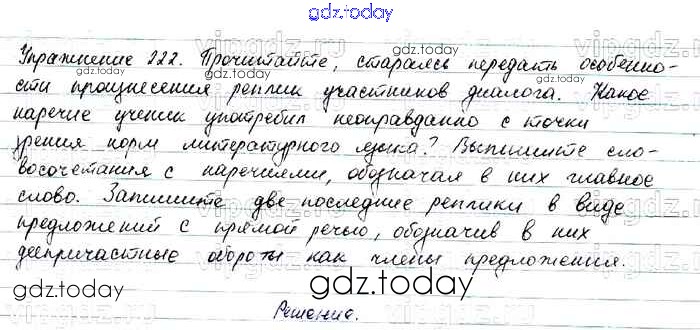 gdz.today
Упражнение 222. Прочитайте, стараясь передать особенно-
gdz.today
gdz.today
сти произнесения реплик участников диалога. Какое
наречие ученик употребил неоправданно с точки
зрения норм литературного языка? Выпишите сло-
восочетания с наречиями, обозначая в них главное
слово. Запишите две последние реплики в виде
предложений с прямой речью, обозначив в них
деепричастные обороты как члены предложения.
gdz.today
gdz.today
gdz.today
Решение.